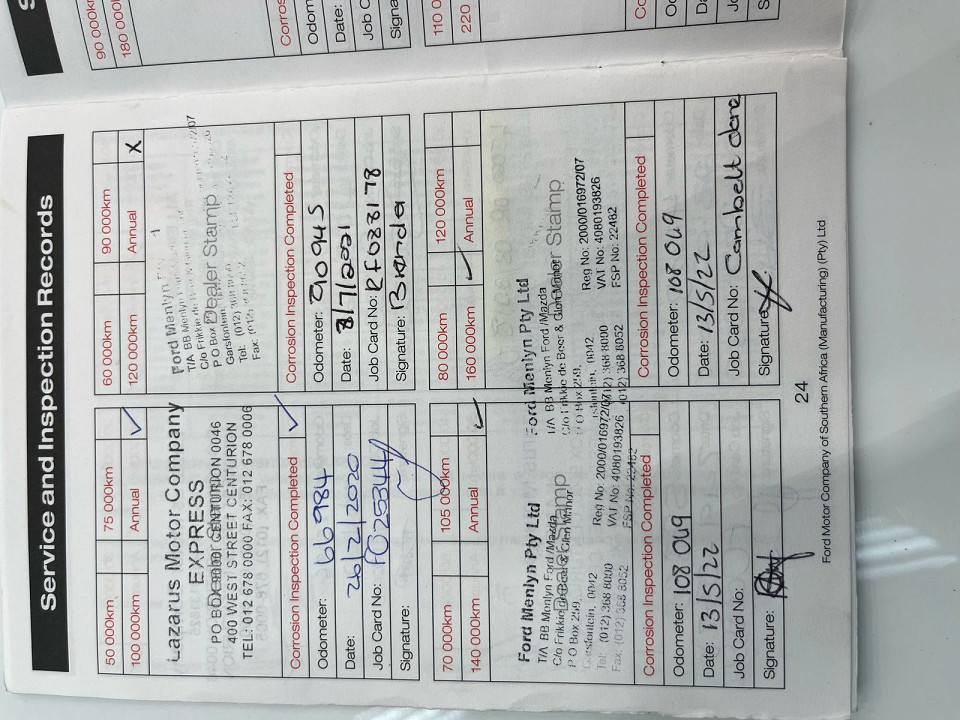 Service and Inspection Records
50 000km 75 000km
100 000km Annual ✓
Lazarus Motor Company
EXPRESS
PO BOX Dealer Stamp CENTURION 0046
400 WEST STREET CENTURION
TEL: 012 678 0000 FAX: 012 678 0006
Corrosion Inspection Completed ✓
Odometer: 66984
Date: 26/2/2020
Job Card No: F0253444
Signature:
60 000km 90 000km
120 000km Annual X
Ford Menlyn
T/A BB Menlyn
C/o Frikkie
P O Box Dealer Stamp
Garsfontein
Tel: (012)
Fax:
Corrosion Inspection Completed
Odometer: 90945
Date: 8/7/2021
Job Card No:
Signature:
70 000km 105 000km
140 000km Annual ✓
Ford Menlyn Pty Ltd
T/A BB Menlyn Ford/Mazda
C/o Frikkie de Beer & Glen Manor
Dealer Stamp
P O Box 259,
Garsfontein, 0042
Tel: (012) 368 8000
Fax: (012) 368 8052
Reg No: 2000/016972/07
VAT No: 4080193826
FSP No: 22462
Corrosion Inspection Completed
Odometer: 108 049
Date: 13/5/22
Job Card No:
Signature:
80 000km 120 000km
160 000km ✓ Annual
Ford Menlyn Pty Ltd
T/A BB Menlyn Ford/Mazda
C/o Frikkie de Beer & Glen Manor
Dealer Stamp
P O Box 259,
Garsfontein, 0042
(012) 368 8000
(012) 368 8052
Reg No: 2000/016972/07
VAT No: 4080193826
FSP No: 22462
Corrosion Inspection Completed
Odometer: 108 049
Date: 13/5/22
Job Card No: Cambelt done
Signature:
24
Ford Motor Company of Southern Africa (Manufacturing) (Pty) Ltd
90 000km
180 000
Corros
Odom
Date:
Job C
Signa
110 0
220
Co
Od
Da
Jo
S